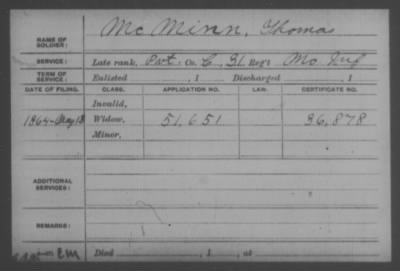 NAME OF SOLDIER: McMinn, Thomas
SERVICE: Late rank, Pvt. Co. C, 31 Reg't Mo Inf
TERM OF SERVICE: Enlisted , 1 Discharged , 1
DATE OF FILING. CLASS. APPLICATION NO. LAW. CERTIFICATE NO.
Invalid,
1864-May 13 Widow, 51,651 36,878
Minor,
ADDITIONAL SERVICES:
REMARKS:
Died , 1 , at